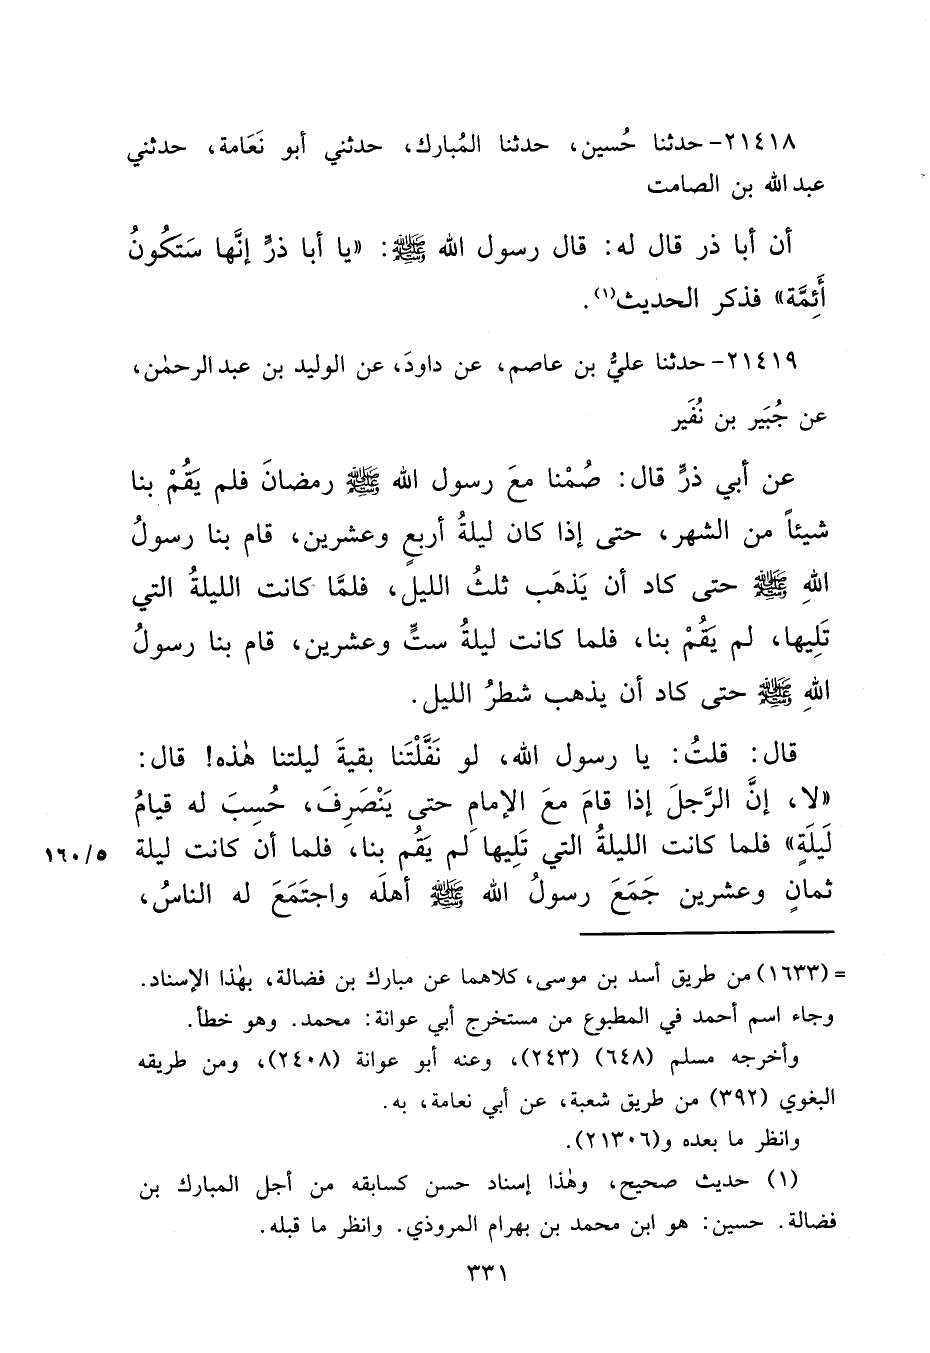 ٢١٤١٨- حدثنا حُسين، حدثنا المُبارك، حدثني أبو نَعَامة، حدثني
عبد الله بن الصامت
أن أبا ذر قال له: قال رسول الله ﷺ: «يا أبا ذرٍّ إنَّها سَتَكُونُ
أَئِمَّة» فذكر الحديث(١).
٢١٤١٩- حدثنا عليُّ بن عاصم، عن داودَ، عن الوليد بن عبد الرحمٰن،
عن جُبَير بن نُفَير
عن أبي ذرٍّ قال: صُمْنا معَ رسول الله ﷺ رمضانَ فلم يَقُمْ بنا
شيئاً من الشهر، حتى إذا كان ليلةُ أربعٍ وعشرين، قام بنا رسولُ
اللهِ ﷺ حتى كاد أن يَذهَب ثلثُ الليل، فلمَّا كانت الليلةُ التي
تَلِيها، لم يَقُمْ بنا، فلما كانت ليلةُ ستٍّ وعشرين، قام بنا رسولُ
اللهِ ﷺ حتى كاد أن يذهب شطرُ الليل.
قال: قلتُ: يا رسول الله، لو نَفَّلْتَنا بقيةَ ليلتنا هٰذه! قال:
«لا، إنَّ الرَّجلَ إذا قامَ معَ الإمامِ حتى يَنْصَرِفَ، حُسِبَ له قيامُ
لَيلَةٍ» فلما كانت الليلةُ التي تَلِيها لم يَقُم بنا، فلما أن كانت ليلة ١٦٠/٥
ثمانٍ وعشرين جَمَعَ رسولُ الله ﷺ أهلَه واجتَمَعَ له الناسُ،
= (١٦٣٣) من طريق أسد بن موسى، كلاهما عن مبارك بن فضالة، بهٰذا الإسناد.
وجاء اسم أحمد في المطبوع من مستخرج أبي عوانة: محمد. وهو خطأ.
وأخرجه مسلم (٦٤٨) (٢٤٣)، وعنه أبو عوانة (٢٤٠٨)، ومن طريقه
البغوي (٣٩٢) من طريق شعبة، عن أبي نعامة، به.
وانظر ما بعده و(٢١٣٠٦).
(١) حديث صحيح، وهٰذا إسناد حسن كسابقه من أجل المبارك بن
فضالة. حسين: هو ابن محمد بن بهرام المروذي. وانظر ما قبله.
٣٣١